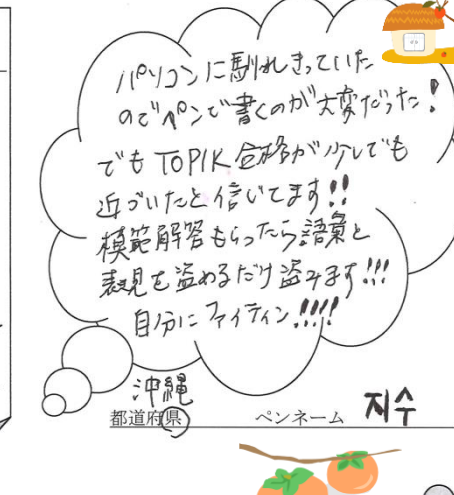 パソコンに馴れきっていた
のでペンで書くのが大変だった!
でもTOPIK合格が少しでも
近づいたと信じてます!!
模範解答もらったら語彙と
表現を盗めるだけ盗みます!!!
自分にファイティン!!!!
沖縄
都道府県 ペンネーム 지수